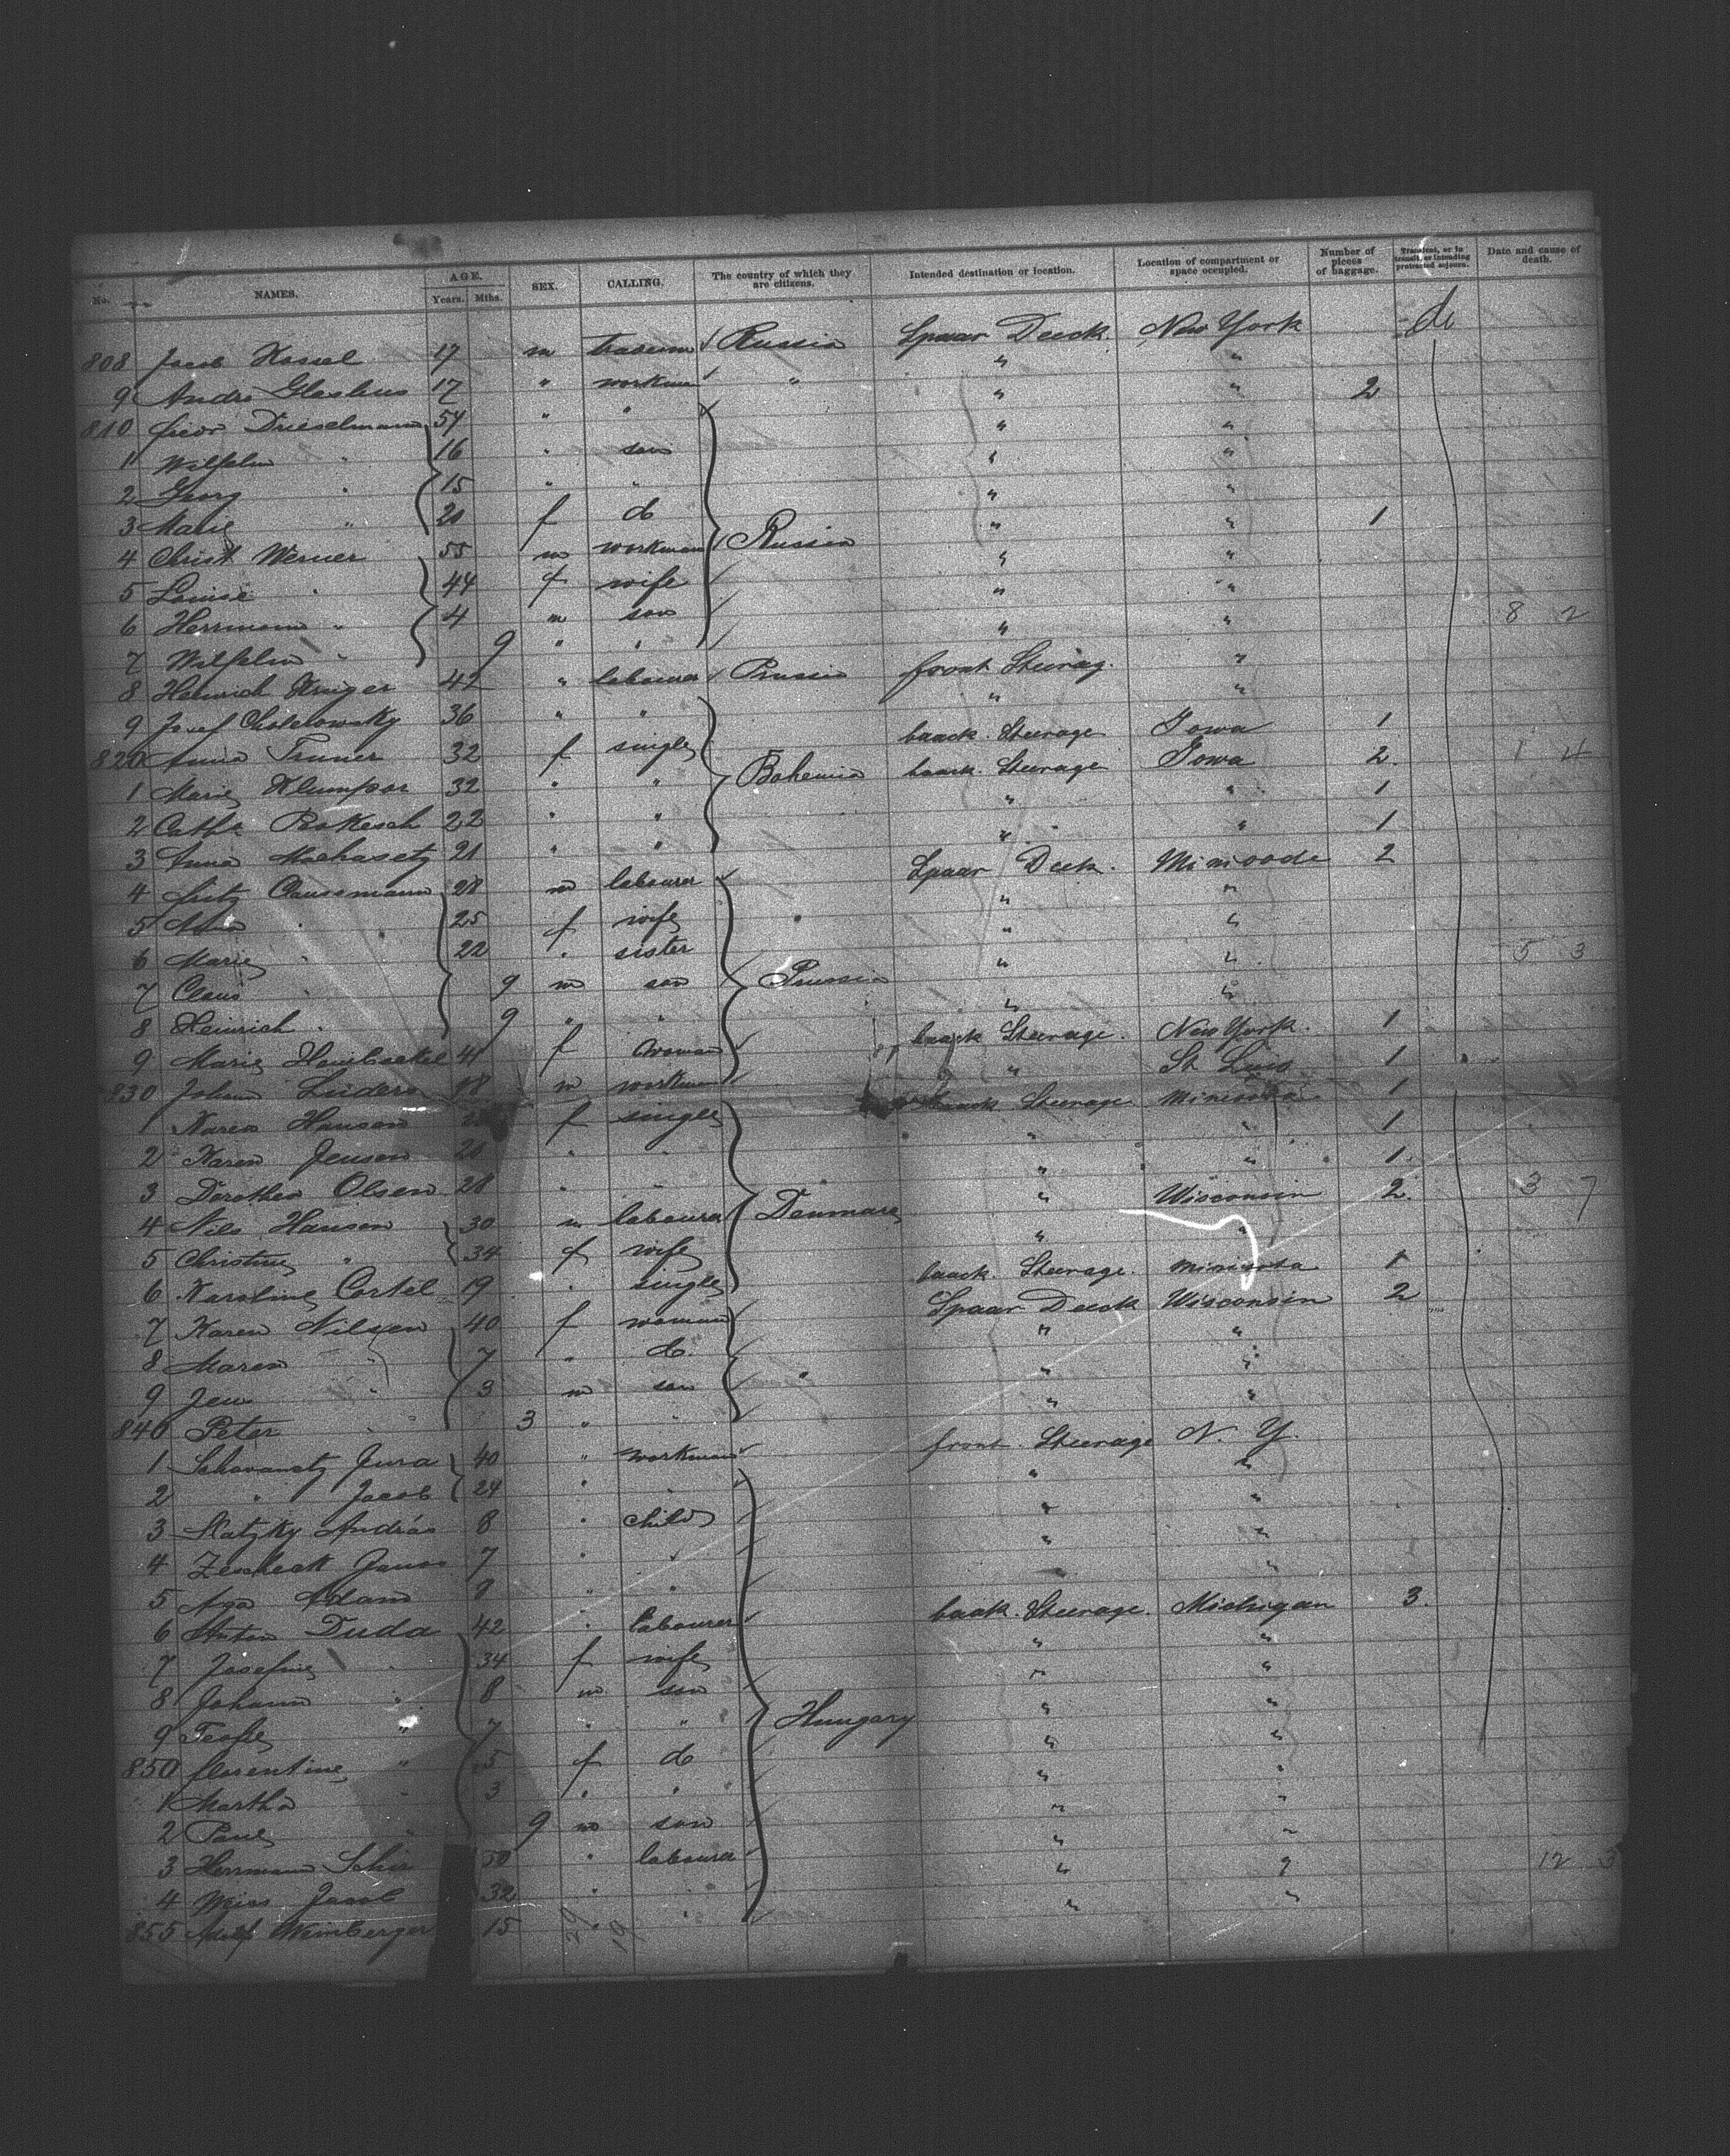 No. NAMES. AGE. Years. Mths. SEX. CALLING. The country of which they are citizens. Intended destination or location. Location of compartment or space occupied. Number of pieces of baggage. Transient, or in transit, or intending protracted sojourn. Date and cause of death.
808 Jacob Kossel 17 m Russia Spaar Deeck. New York do
9 Andre 17 " workman " " "
810 54 " " " " 2
1 Wilhelm " 16 " son " "
2 Georg " 15 " " " "
3 Marie " 20 f do " "
4 Christ Werner 55 m workman Russia " " 1
5 Louise " 44 f wife " "
6 Herrmann " 4 m son " "
7 Wilhelm " 9 " " " " 8 2
8 Heinrich Krüger 42 " labourer Prussia front Steerag. "
9 Josef 36 " " " "
820 Anna 32 f single baack. Steerage Iowa 1
1 Marie 32 " " Bohemia baack. Steerage Iowa 2. 1 4
2 Cath. Prokesch 22 " " " " 1
3 Anna 21 " " " " 1
4 Fritz Claussmann 28 m labourer Spaar Deck. 2
5 Anna " 25 f wife " "
6 Marie " 22 " sister " "
7 Claus " 9 m son Prussia " " 5 3
8 Heinrich " 9 " " " "
9 Marie 41 f woman baack Steerage. New York. 1
830 Johann Lüders m workman " St Luis 1
1 Karen Hansen f single baack Steerage Minesota 1
2 Karen Jensen 20 " " " " 1
3 Dorothea Olsen 28 " " " " 1.
4 Nils Hansen 30 m labourer Denmark " Wisconsin 2. 3 7
5 Christine " 34 f wife " "
6 Karoline 19 " single baack. Steerage. minesota 1
7 Karen Nilsen 40 f woman Spaar Deeck Wisconsin 2
8 Maren " 7 " do. " "
9 Jens " 3 m son " " "
840 Peter " 3 " " " "
1 Jura 40 " workman front. Steerage N. Y.
2 " Jacob 24 " " " "
3 András 8 " child " "
4 Janos 7 " " " "
5 Adam 9 " " " "
6 Anton Duda 42 " labourer baak. Steerage. Michigan 3.
7 Josefine " 34 f wife " "
8 Johann " 8 m son " "
9 " 7 " " Hungary " "
850 florentine " 5 f do " "
1 Martha " 3 " " " "
2 Paul " 9 m son " "
3 Herrmann 50 " labourer " "
4 Jacob 32 " " " " 12 3
855 Adolf Weinberger 15 " " " "
29 19